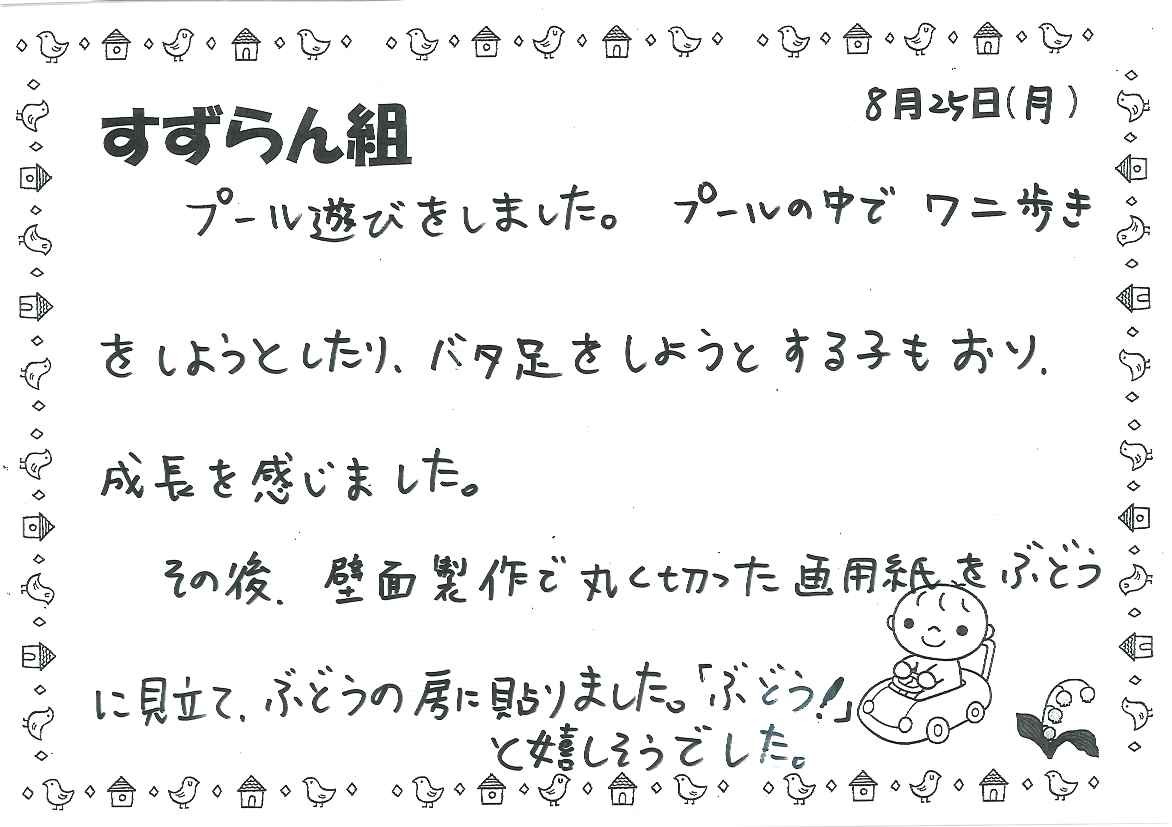 8月25日(月)
すずらん組
プール遊びをしました。 プールの中で ワニ歩き
をしようとしたり、バタ足をしようとする子もおり、
成長を感じました。
その後、壁面製作で丸く切った画用紙をぶどう
に見立て、ぶどうの房に貼りました。「ぶどう!」
と嬉しそうでした。